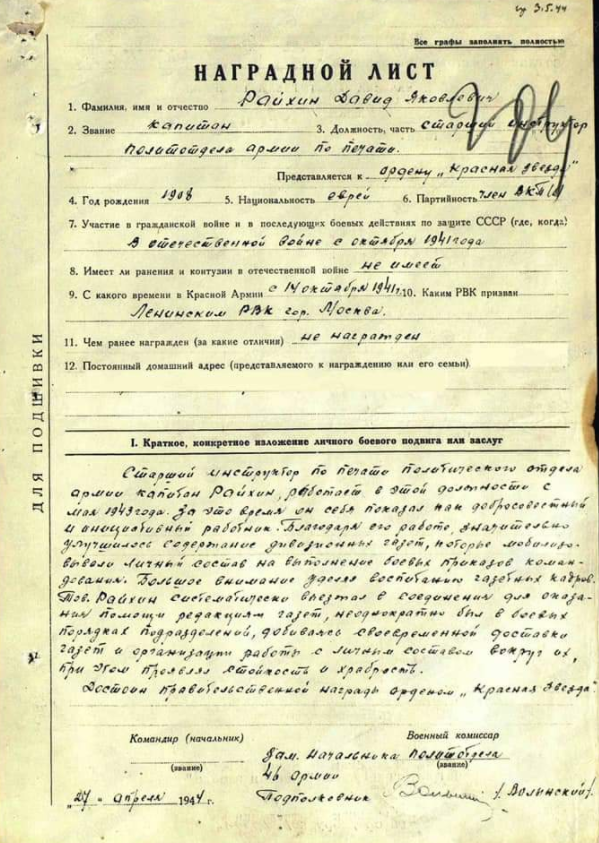 3.5.44
Все графы заполнять полностью
НАГРАДНОЙ ЛИСТ
1. Фамилия, имя и отчество Райхин Давид Яковлевич
2. Звание капитан 3. Должность, часть старший инструктор
политотдела армии по печати.
Представляется к ордену „Красная звезда"
4. Год рождения 1908 5. Национальность еврей 6. Партийность член ВКП(б)
7. Участие в гражданской войне и в последующих боевых действиях по защите СССР (где, когда)
В отечественной войне с октября 1941 года
8. Имеет ли ранения и контузии в отечественной войне не имеет
9. С какого времени в Красной Армии с 14 октября 1941 г. 10. Каким РВК призван
Ленинским РВК гор. Москва.
11. Чем ранее награжден (за какие отличия) не награжден
12. Постоянный домашний адрес (представляемого к награждению или его семьи)
ДЛЯ ПОДШИВКИ
I. Краткое, конкретное изложение личного боевого подвига или заслуг
Старший инструктор по печати политического отдела
армии капитан Райхин, работает в этой должности с
мая 1943 года. За это время он себя показал как добросовестный
и инициативный работник. Благодаря его работе значительно
улучшилось содержание дивизионных газет, которые мобилизо-
вывали личный состав на выполнение боевых приказов коман-
дования. Большое внимание уделял воспитанию газетных кадров.
Тов. Райхин систематически выезжал в соединения для оказа-
ния помощи редакциям газет, неоднократно был в боевых
порядках подразделений, добиваясь своевременной доставки
газет и организации работы с личным составом вокруг их,
при этом проявлял стойкость и храбрость.
Достоин правительственной награды орденом „Красная звезда".
Командир (начальник) Военный комиссар
Зам. начальника политотдела
(звание) (звание)
46 армии
„27" апреля 1944 г. Подполковник /. Волынский/.